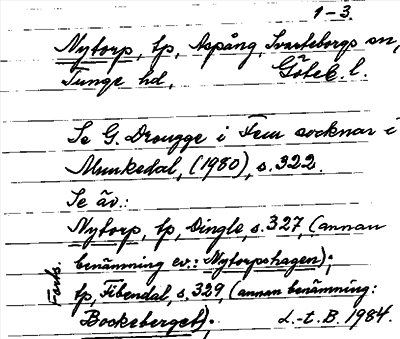 1-3.
Nytorp, tp, Aspång, Svarteborgs sn,
Tunge hd, Göteb. l.
Se G. Drougge i Fem socknar i
Munkedal, (1980), s. 322.
Se äv.:
Nytorp, tp, Dingle, s. 327, (annan
benämning ev.: Nytorpshagen);
tp, Fibendal, s. 329, (annan benämning:
Boskeberget);
Forts.
L.-t. B. 1984.